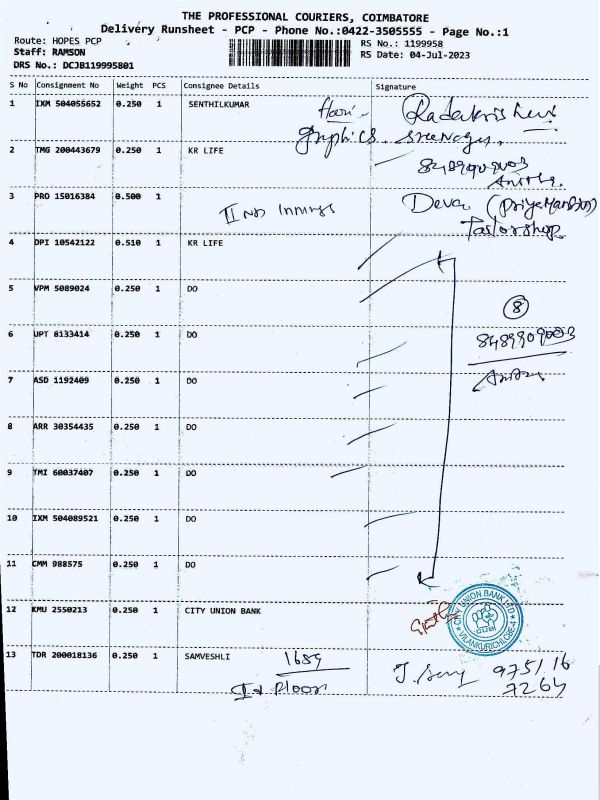 THE PROFESSIONAL COURIERS, COIMBATORE
Delivery Runsheet - PCP - Phone No.:0422-3505555 - Page No.:1
Route: HOPES PCP
Staff: RAMSON
DRS No.: DCJB119995801
RS No.: 1199958
RS Date: 04-Jul-2023
S No Consignment No Weight PCS Consignee Details Signature
1 IXM 504055652 0.250 1 SENTHILKUMAR
Graphics.
2 TMG 200443679 0.250 1 KR LIFE
8489909003
3 PRO 15016384 0.500 1 II nd Innings Deva
Tailorshop
4 DPI 10542122 0.510 1 KR LIFE
5 VPM 5089024 0.250 1 DO
8
6 UPT 8133414 0.250 1 DO 8489909003
7 ASD 1192409 0.250 1 DO
8 ARR 30354435 0.250 1 DO
9 TMI 60037407 0.250 1 DO
10 IXM 504089521 0.250 1 DO
11 CMM 988575 0.250 1 DO
12 KMU 2550213 0.250 1 CITY UNION BANK
CITY UNION BANK LTD
VILANKURICHI, CBE-4
13 TDR 200018136 0.250 1 SAMVESHLI 1689 97516
Floor 7264